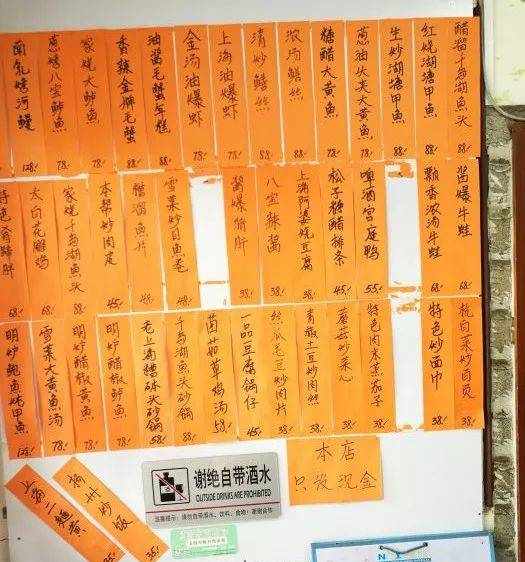 醋溜千岛湖鱼头 88/
红烧湖塘甲鱼 88/
生炒湖塘甲鱼 88/
葱油火夹大黄鱼 88/
糖醋大黄鱼 78/
浓汤鳝丝 88/
清炒鳝丝 88/
上海油爆虾 78/
金汤油爆虾 78/
油酱毛蟹年糕
香辣金牌毛蟹
家烧大鲈鱼 78/
葱烤八宝鲈鱼 78/
南乳烤河鳗 128/
酱爆牛蛙 68/
飘香浓汤牛蛙 68/
啤酒宫庭鸭 55/
松子糖醋排条 45/
上海阿婆烧豆腐 38/
八宝辣酱 38/
酱爆猪肝 38/
雪菜炒目鱼卷 48/
醋溜鱼片 48
本帮炒肉皮 45/
家烧千岛湖鱼头 88
太白花雕鸡 68/
特色
杭白菜炒百页 38/
特色炒面巾 38/
特色肉末蒸茄子 38/
蘑菇炒菜心 38/
青椒土豆炒肉丝 38/
丝瓜毛豆炒肉片 38/
一品豆腐锅仔 45/
菌菇草鸡汤 58/
千岛湖鱼头砂锅 88
老上海糟钵头砂锅 58
明炉醋椒鲈鱼 78/
明炉醋椒黄鱼 88/
雪菜大黄鱼汤 78/
明炉鲍鱼烤甲鱼 128/
本店
只收现金
谢绝自带酒水
OUTSIDE DRINKS ARE PROHIBITED
温馨提示：请勿自带酒水、饮料、食物！谢谢合作
扬州炒饭 35/
上海二面黄